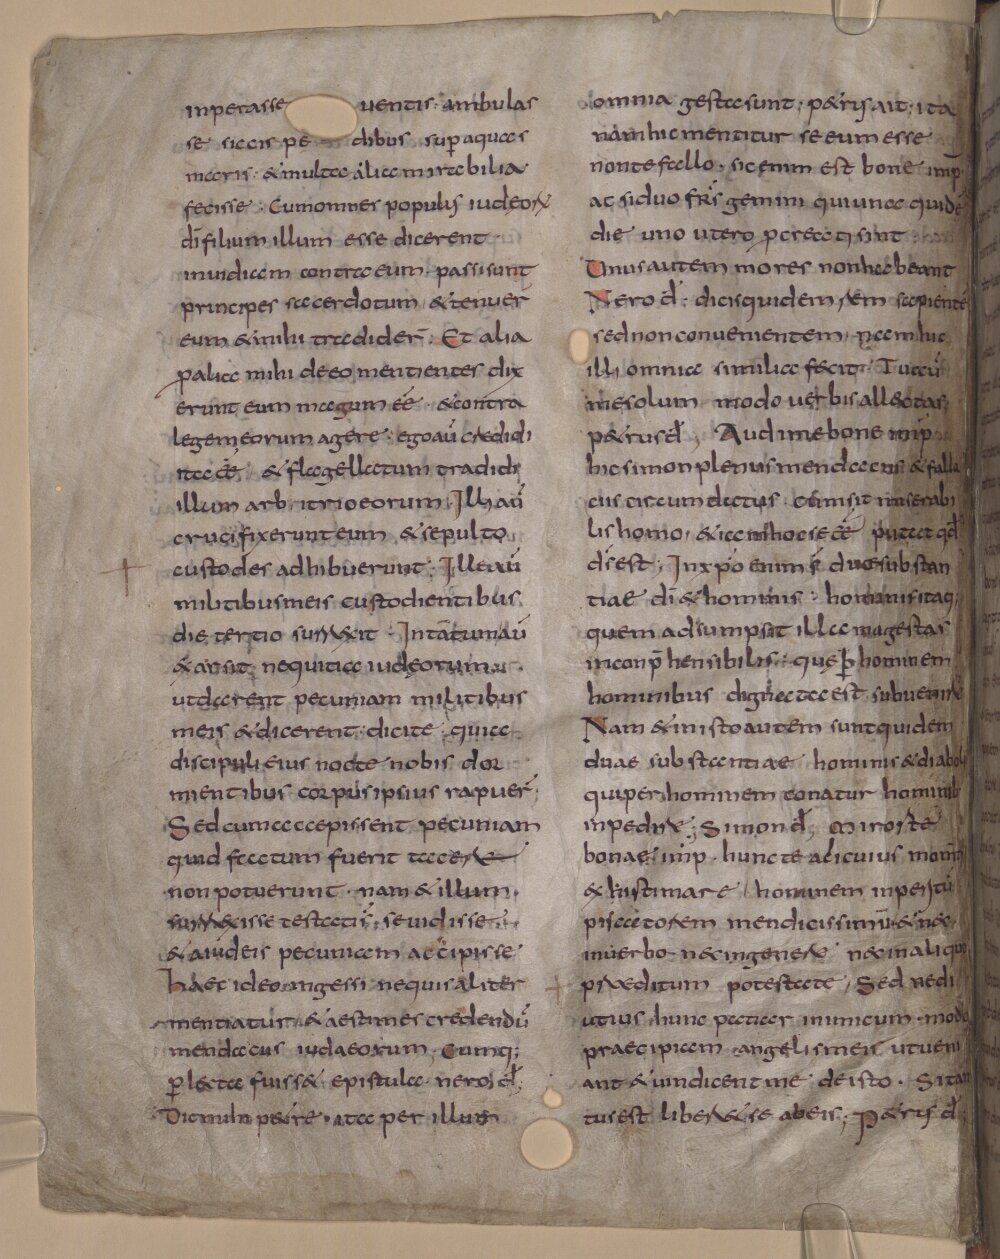 inperasse uentis ambulas
se siccis pedibus sup aquas
maris & multa alia mirabilia
fecisse. Cum omnes populi iudeorum
di filium illum esse dicerent
inuidiam contra eum passi sunt
principes sacerdotum & tenuer
eum & mihi tradider. Et alia
p alia mihi de eo mentientes dix
erunt eum magum ee & contra
legem eorum agere. ego au credidi
ita ee & flagellatum tradidi
illum arbitrio eorum. Illi au
crucifixerunt eum & sepulto
custodes adhibuerunt. Ille au
militibus meis custodientibus
die tertio surrexit. In tantum au
exarsit nequitia iudeorum
ut darent pecuniam militibus
meis & dicerent. dicite quia
discipuli eius nocte nobis dor
mientibus corpus ipsius rapuer;
Sed cum accepissent pecuniam
quid factum fuerit tacere
non potuerunt. nam & illum
surrexisse testati s se uidisse
& a iudeis pecuniam accipisse
haec ideo ingessi ne quis aliter
mentiatur & aestimes credendu
mendacus iudaeorum. Cumq;
p lecta fuisse epistula. nero d.
Dic mihi petre. ita per illum
omnia gesta sunt; petrus ait; ita
nam hic mentitur se eum esse
non te fallo. sic enim est bone imp
ac si duo frs gemini qui una quide
die uno utero pcreati sint
Unus autem mores non habeant
Nero d. dicis quidem rem sapiente
sed non conuenientem. nam hic
illi omnia similia fecit. Tu au
me solum modo uerbis allectas
petrus d. Audi me bone imp
hic simon plenus mendaciis & falla
ciis circumdatus. cum sit miserabi
lis homo, & iam hoc se ee putat qd
ds est; In xpo enim s duo substan
tiae di & hominis. hominis itaq;
quem adsumpsit illa magestas
inconphensibilis. que p hominem
hominibus dignata est subuenire
Nam & in isto autem sunt quidem
duae substantiae hominis & diaboli
qui per hominem conatur hominib
inpedire; Simon d. Miror te
bonae imp. hunc te alicuius mom
& existimare hominem inperitu
piscatorem mendicissimu & nec
in uerbo nec in genere nec in aliquo
preditum potestate. Sed ne di
utius hunc patiar inimicum. modo
praecipiam angelis meis ut ueni
ant & uindicent me de isto. Sitan
tus est libere se abeis; Petrus d.